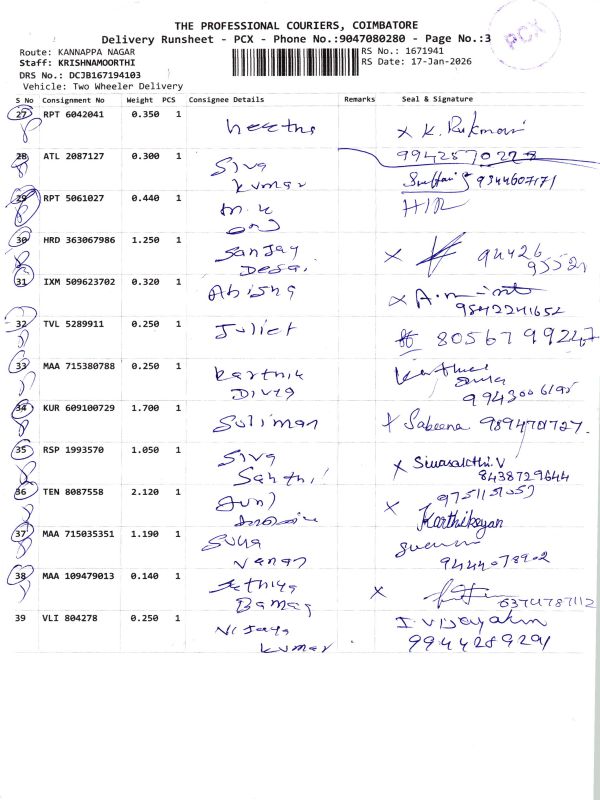 THE PROFESSIONAL COURIERS, COIMBATORE
Delivery Runsheet - PCX - Phone No.:9047080280 - Page No.:3
PCX
Route: KANNAPPA NAGAR
RS No.: 1671941
Staff: KRISHNAMOORTHI
RS Date: 17-Jan-2026
DRS No.: DCJB167194103
Vehicle: Two Wheeler Delivery
S No Consignment No Weight PCS Consignee Details Remarks Seal & Signature
27 RPT 6042041 0.350 1 X K. Rukmani
28 ATL 2087127 0.300 1 Siva
Kumar
9344607171
29 RPT 5061027 0.440 1
30 HRD 363067986 1.250 1 Sanjay
Desai X 94426
31 IXM 509623702 0.320 1 Abisha X
9842241652
32 TVL 5289911 0.250 1 Juliet 8056799247
33 MAA 715380788 0.250 1 Karthik
Divya
34 KUR 609100729 1.700 1 Suliman X Sabeena 9894701727.
35 RSP 1993570 1.050 1 Siva
Santhi X Sivasakthi.V
8438729644
36 TEN 8087558 2.120 1 X
Karthikeyan
37 MAA 715035351 1.190 1
38 MAA 109479013 0.140 1 X
6374787112
39 VLI 804278 0.250 1 Vijaya
Kumar
9944289291